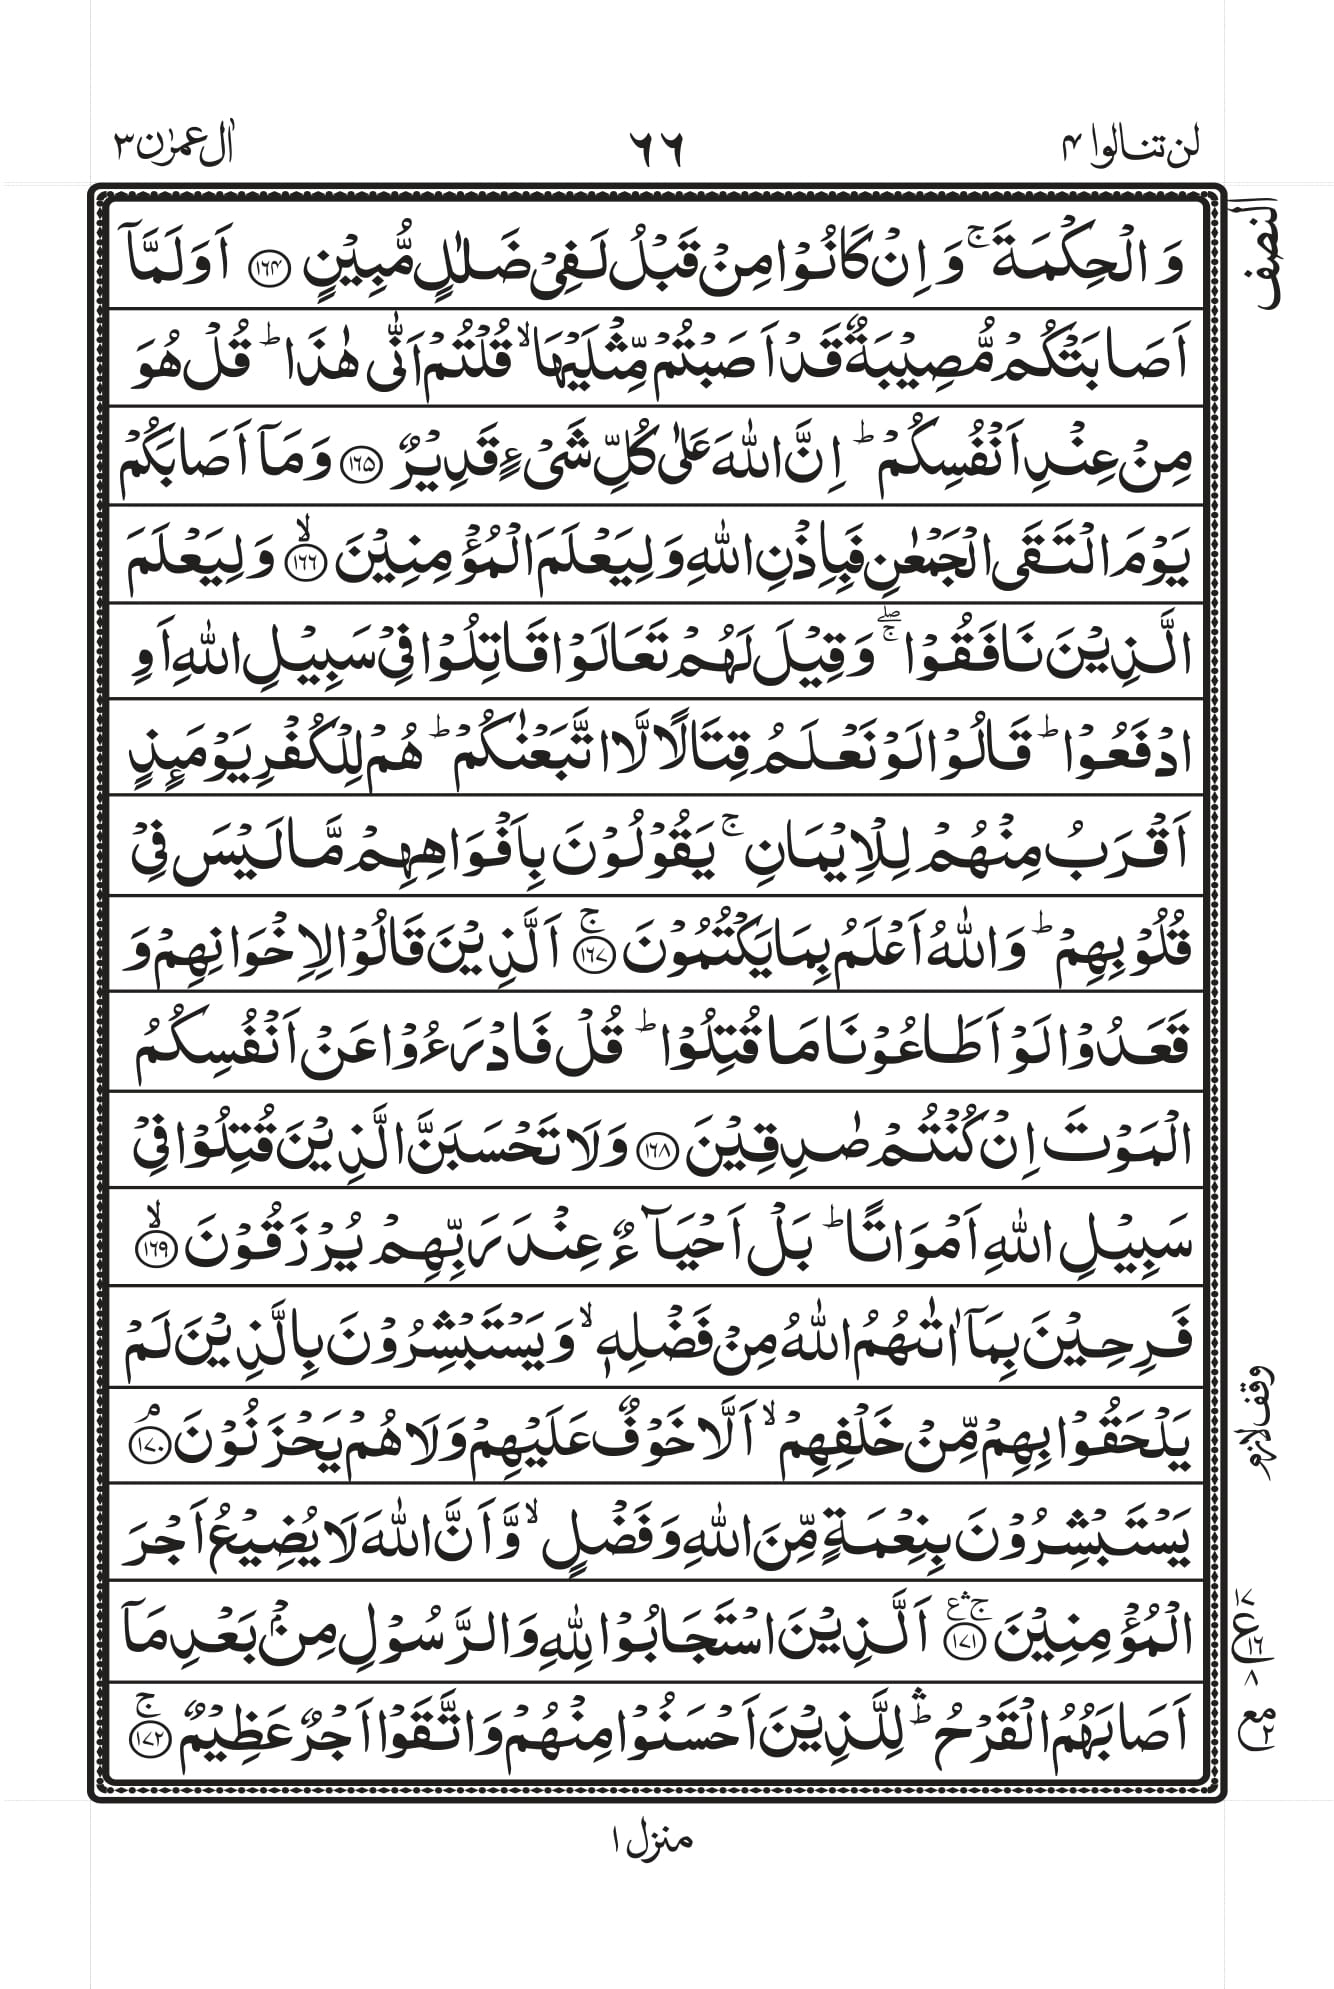 لن تنالوا ۴ ٦٦ اٰل عمرٰن ۳
النصف
وَالْحِكْمَةَ ۚ وَاِنْ كَانُوْا مِنْ قَبْلُ لَفِیْ ضَلٰلٍ مُّبِیْنٍ ﴿۱۶۴﴾ اَوَلَمَّآ
اَصَابَتْكُمْ مُّصِیْبَةٌ قَدْ اَصَبْتُمْ مِّثْلَیْهَا ۙ قُلْتُمْ اَنّٰی هٰذَا ؕ قُلْ هُوَ
مِنْ عِنْدِ اَنْفُسِكُمْ ؕ اِنَّ اللّٰهَ عَلٰی كُلِّ شَیْءٍ قَدِیْرٌ ﴿۱۶۵﴾ وَمَآ اَصَابَكُمْ
یَوْمَ الْتَقَی الْجَمْعٰنِ فَبِاِذْنِ اللّٰهِ وَلِیَعْلَمَ الْمُؤْمِنِیْنَ ﴿۱۶۶﴾ۙ وَلِیَعْلَمَ
الَّذِیْنَ نَافَقُوْا ۖۚ وَقِیْلَ لَهُمْ تَعَالَوْا قَاتِلُوْا فِیْ سَبِیْلِ اللّٰهِ اَوِ
ادْفَعُوْا ؕ قَالُوْا لَوْ نَعْلَمُ قِتَالًا لَّا اتَّبَعْنٰكُمْ ؕ هُمْ لِلْكُفْرِ یَوْمَىِٕذٍ
اَقْرَبُ مِنْهُمْ لِلْاِیْمَانِ ۚ یَقُوْلُوْنَ بِاَفْوَاهِهِمْ مَّا لَیْسَ فِیْ
قُلُوْبِهِمْ ؕ وَاللّٰهُ اَعْلَمُ بِمَا یَكْتُمُوْنَ ﴿۱۶۷﴾ۚ اَلَّذِیْنَ قَالُوْا لِاِخْوَانِهِمْ وَ
قَعَدُوْا لَوْ اَطَاعُوْنَا مَا قُتِلُوْا ؕ قُلْ فَادْرَءُوْا عَنْ اَنْفُسِكُمُ
الْمَوْتَ اِنْ كُنْتُمْ صٰدِقِیْنَ ﴿۱۶۸﴾ وَلَا تَحْسَبَنَّ الَّذِیْنَ قُتِلُوْا فِیْ
سَبِیْلِ اللّٰهِ اَمْوَاتًا ؕ بَلْ اَحْیَآءٌ عِنْدَ رَبِّهِمْ یُرْزَقُوْنَ ﴿۱۶۹﴾ۙ
فَرِحِیْنَ بِمَآ اٰتٰىهُمُ اللّٰهُ مِنْ فَضْلِهٖ ۙ وَیَسْتَبْشِرُوْنَ بِالَّذِیْنَ لَمْ
یَلْحَقُوْا بِهِمْ مِّنْ خَلْفِهِمْ ۙ اَلَّا خَوْفٌ عَلَیْهِمْ وَلَا هُمْ یَحْزَنُوْنَ ﴿۱۷۰﴾ۘ
وقف لازم
یَسْتَبْشِرُوْنَ بِنِعْمَةٍ مِّنَ اللّٰهِ وَفَضْلٍ ۙ وَّاَنَّ اللّٰهَ لَا یُضِیْعُ اَجْرَ
الْمُؤْمِنِیْنَ ﴿۱۷۱﴾ۚۛ ع اَلَّذِیْنَ اسْتَجَابُوْا لِلّٰهِ وَالرَّسُوْلِ مِنْۢ بَعْدِ مَآ
۱۷ ع ۱۶ ۸
اَصَابَهُمُ الْقَرْحُ ؕۛ لِلَّذِیْنَ اَحْسَنُوْا مِنْهُمْ وَاتَّقَوْا اَجْرٌ عَظِیْمٌ ﴿۱۷۲﴾ۚ
مع ۲
منزل ۱